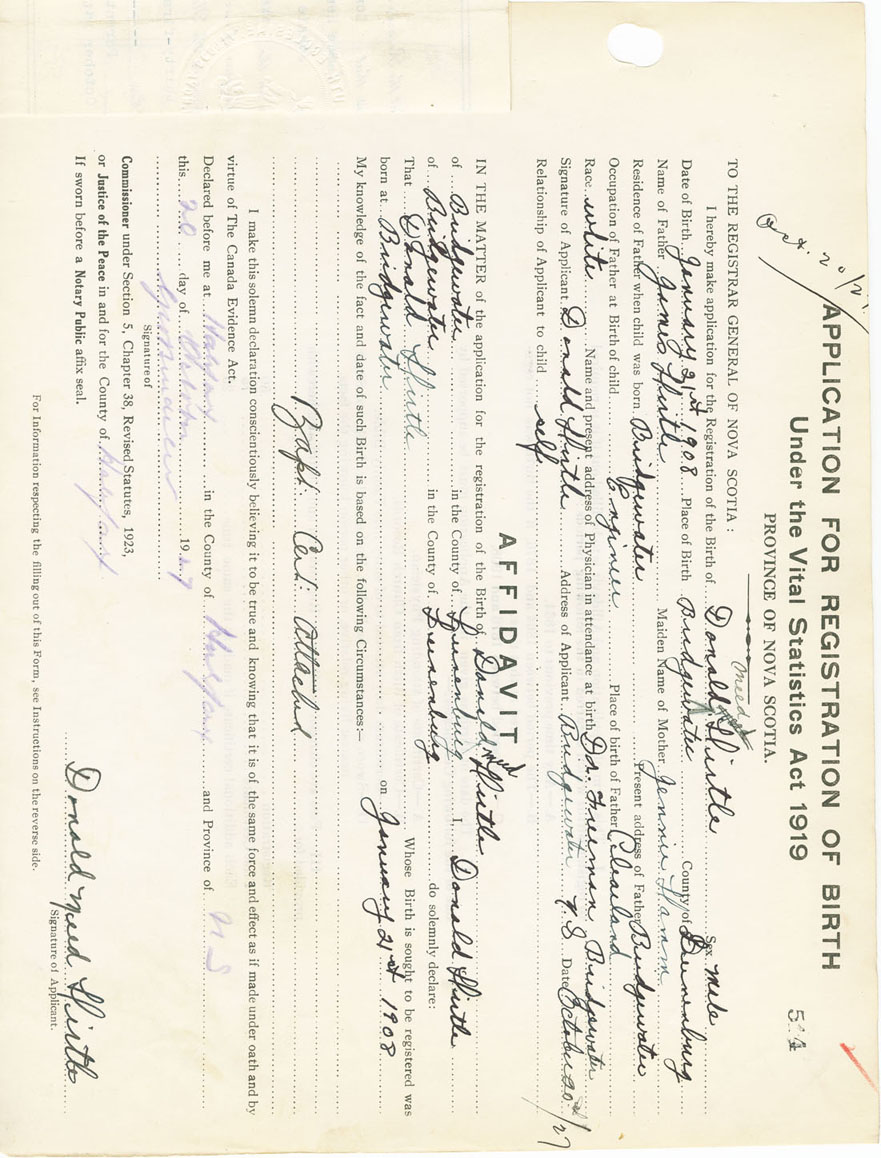 Oct. 20/27
APPLICATION FOR REGISTRATION OF BIRTH
Under the Vital Statistics Act 1919
PROVINCE OF NOVA SCOTIA.
TO THE REGISTRAR GENERAL OF NOVA SCOTIA:
I hereby make application for the Registration of the Birth of Donald Meed Hirtle Sex Male
Date of Birth January 21st 1908 Place of Birth Bridgewater County of Lunenburg
Name of Father James Hirtle Maiden Name of Mother Jennie Hamm
Residence of Father when child was born Bridgewater Present address of Father Bridgewater
Occupation of Father at Birth of child Engineer Place of birth of Father
Race white Name and present address of Physician in attendance at birth Dr. Freeman Bridgewater
Signature of Applicant Donald Hirtle Address of Applicant Bridgewater N.S Date October 20/27
Relationship of Applicant to child self
AFFIDAVIT
IN THE MATTER of the application for the registration of the Birth of Donald Hirtle
of Bridgewater in the County of Lunenburg I, Donald Hirtle
of Bridgewater in the County of Lunenburg do solemnly declare:
That Donald Hirtle Whose Birth is sought to be registered was
born at Bridgewater on January 21st 1908
My knowledge of the fact and date of such Birth is based on the following Circumstances:—
Bapt. Cert. Attached
I make this solemn declaration conscientiously believing it to be true and knowing that it is of the same force and effect as if made under oath and by
virtue of The Canada Evidence Act.
Declared before me at Halifax in the County of Halifax and Province of N S
this 20 day of October 1927
Signature of
Commissioner under Section 5, Chapter 38, Revised Statutes, 1923,
or Justice of the Peace in and for the County of Halifax
If sworn before a Notary Public affix seal.
Donald Meed Hirtle
Signature of Applicant.
For Information respecting the filling out of this Form, see Instructions on the reverse side.